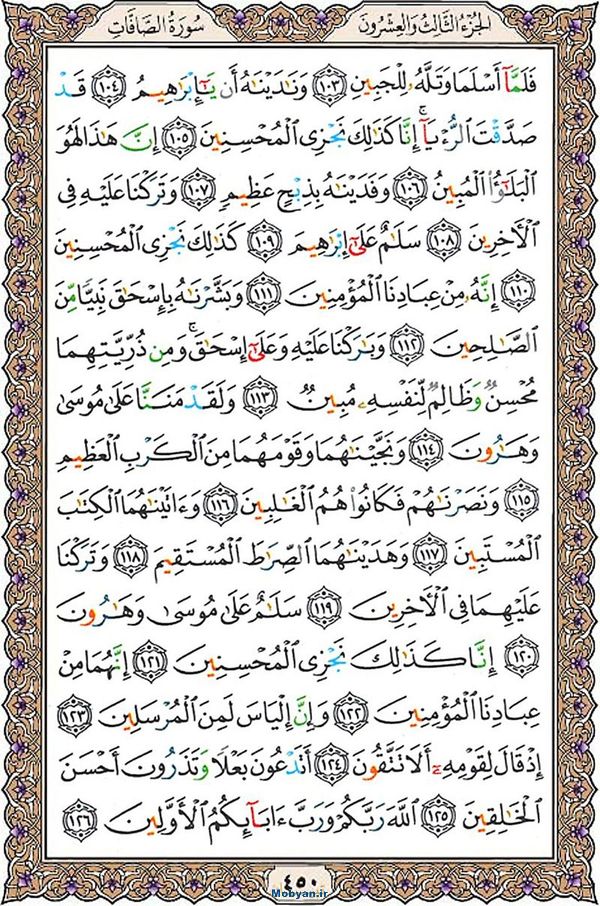 الجزء الثالث والعشرون سورة الصافات
فَلَمَّآ أَسْلَمَا وَتَلَّهُۥ لِلْجَبِينِ ١٠٣ وَنَٰدَيْنَٰهُ أَن يَٰٓإِبْرَٰهِيمُ ١٠٤ قَدْ
صَدَّقْتَ ٱلرُّءْيَآ ۚ إِنَّا كَذَٰلِكَ نَجْزِى ٱلْمُحْسِنِينَ ١٠٥ إِنَّ هَٰذَا لَهُوَ
ٱلْبَلَٰٓؤُا۟ ٱلْمُبِينُ ١٠٦ وَفَدَيْنَٰهُ بِذِبْحٍ عَظِيمٍ ١٠٧ وَتَرَكْنَا عَلَيْهِ فِى
ٱلْءَاخِرِينَ ١٠٨ سَلَٰمٌ عَلَىٰٓ إِبْرَٰهِيمَ ١٠٩ كَذَٰلِكَ نَجْزِى ٱلْمُحْسِنِينَ
١١٠ إِنَّهُۥ مِنْ عِبَادِنَا ٱلْمُؤْمِنِينَ ١١١ وَبَشَّرْنَٰهُ بِإِسْحَٰقَ نَبِيًّا مِّنَ
ٱلصَّٰلِحِينَ ١١٢ وَبَٰرَكْنَا عَلَيْهِ وَعَلَىٰٓ إِسْحَٰقَ ۚ وَمِن ذُرِّيَّتِهِمَا
مُحْسِنٌ وَظَالِمٌ لِّنَفْسِهِۦ مُبِينٌ ١١٣ وَلَقَدْ مَنَنَّا عَلَىٰ مُوسَىٰ
وَهَٰرُونَ ١١٤ وَنَجَّيْنَٰهُمَا وَقَوْمَهُمَا مِنَ ٱلْكَرْبِ ٱلْعَظِيمِ
١١٥ وَنَصَرْنَٰهُمْ فَكَانُوا۟ هُمُ ٱلْغَٰلِبِينَ ١١٦ وَءَاتَيْنَٰهُمَا ٱلْكِتَٰبَ
ٱلْمُسْتَبِينَ ١١٧ وَهَدَيْنَٰهُمَا ٱلصِّرَٰطَ ٱلْمُسْتَقِيمَ ١١٨ وَتَرَكْنَا
عَلَيْهِمَا فِى ٱلْءَاخِرِينَ ١١٩ سَلَٰمٌ عَلَىٰ مُوسَىٰ وَهَٰرُونَ
١٢٠ إِنَّا كَذَٰلِكَ نَجْزِى ٱلْمُحْسِنِينَ ١٢١ إِنَّهُمَا مِنْ
عِبَادِنَا ٱلْمُؤْمِنِينَ ١٢٢ وَإِنَّ إِلْيَاسَ لَمِنَ ٱلْمُرْسَلِينَ ١٢٣
إِذْ قَالَ لِقَوْمِهِۦٓ أَلَا تَتَّقُونَ ١٢٤ أَتَدْعُونَ بَعْلًا وَتَذَرُونَ أَحْسَنَ
ٱلْخَٰلِقِينَ ١٢٥ ٱللَّهَ رَبَّكُمْ وَرَبَّ ءَابَآئِكُمُ ٱلْأَوَّلِينَ ١٢٦
٤٥٠
Mobyan.ir